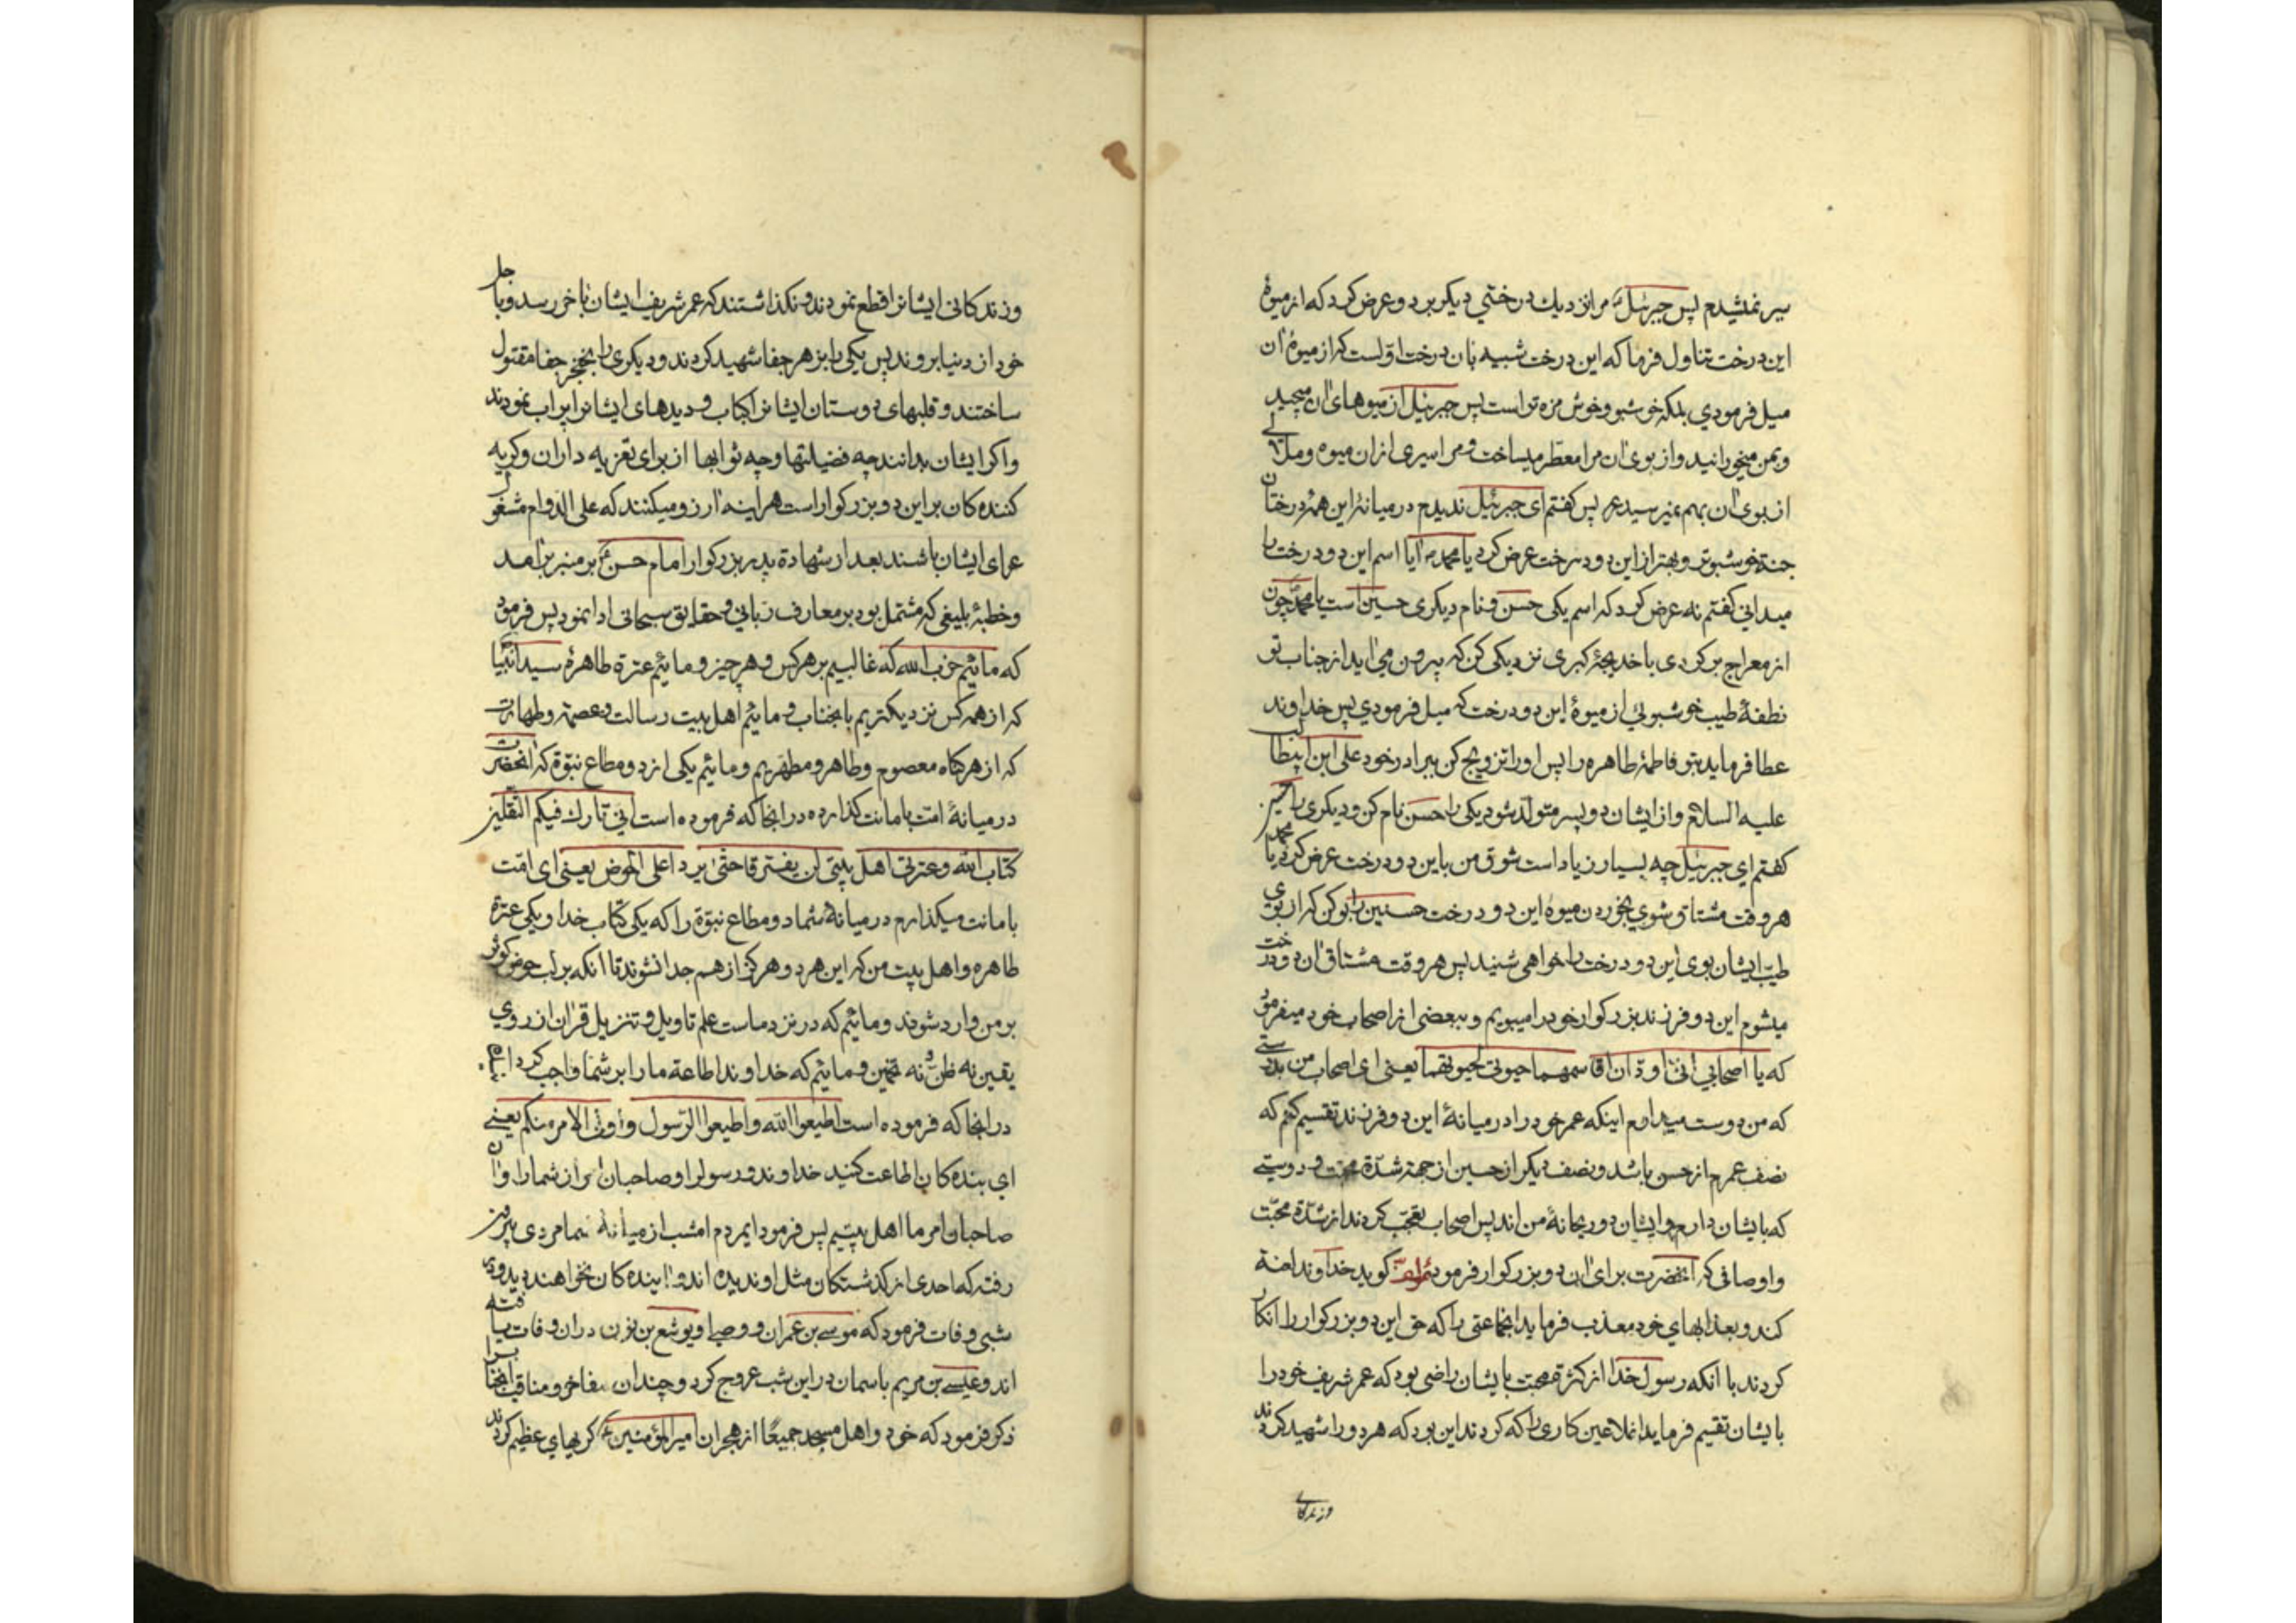 سیر نمیشدم پس جبرئیل مرا نزدیك درختي دیکر برد و عرض کرد که از میوۀ
این درخت تناول فرما که این درخت شبیه بان درخت اوّلست که از میوۀ ان
میل فرمودي بلکه خوشبو و خوش مزه تر است پس جبرئیل از میوهای ان میچید
و بمن میخورانید و از بوی ان مرا معطر میساخت و مرا سیری از ان میوه و ملالی
از بوی ان بهم نمیرسید پس کفتم ای جبرئیل ندیدم در میانۀ این همه درختان
جنة خوشبوتر و بهتر از این دو درخت عرض کرد یا محمد ایا اسم این دو درخت را
میدانی کفتم نه عرض کرد که اسم یکی حسن و نام دیکری حسین است یا محمد چون
از معراج برکردی با خدیجۀ کبری نزدیکی کن که بیرون می اید از جناب تو
نطفۀ طیب خوشبوئی از میوۀ این دو درخت که میل فرمودي پس خداوند
عطا فرماید بتو فاطمۀ طاهره را پس او را تزویج کن ببرادر خود علی ابن ابیطالب
علیه السلام و از ایشان دو پسر متولّد شود یکی را حسن نام کن و دیکری را حسین
کفتم ای جبرئیل چه بسیار زیاد است شوق من باین دو درخت عرض کرد یا محمد
هر وقت مشتاق شوي بخوردن میوۀ این دو درخت حسنین را بو کن که از بوي
طیب ایشان بوی این دو درخت را خواهی شنید پس هر وقت مشتاق ان دو درخت
میشوم این دو فرزند بزرکوار خود را میبویم و ببعضی از اصحاب خود میفرمود
که یا اصحابي انّی اودّ ان اقاسمهما حیوتی لحبّی لهما یعنی ای اصحاب من بدرستی
که من دوست میدارم اینکه عمر خود را در میانۀ این دو فرزند تقسیم کنم که
نصف عمرم از حسن باشد و نصف دیکر از حسین از جهة شدّة محبّت و دوستی
که بایشان دارم و ایشان دو ریحانۀ من اند پس اصحاب تعجّب کردند از شدّة محبّت
و اوصافی که انحضرت برای ان دو بزرکوار فرمود کوید خداوند لعنة
کند و بعذابهاي خود معذب فرماید انجماعتی را که حق این دو بزرکوار را انکار
کردند با انکه رسول خدا از کثرة محبت بایشان راضی بود که عمر شریف خود را
بایشان تقسیم فرماید انملاعین کاری را که کردند این بود که هر دو را شهید کردند
و زندکانی
و زندکانی ایشانرا قطع نمودند و نکذاشتند که عمر شریف ایشان باخر رسد و باجل
خود از دنیا بروند پس یکی را بزهر جفا شهید کردند و دیکری را بخنجر جفا مقتول
ساختند و قلبهای دوستان ایشانرا کباب و دیدهای ایشانرا پر اب نمودند
و اکر ایشان بدانند چه فضیلتها و چه ثوابها از برای تعزیه داران و کریه
کننده کان بر این دو بزرکوار است هراینه ارزو میکنند که علی الدّوام مشغول
عزای ایشان باشند بعد از شهادة پدر بزرکوار امام حسن بر منبر برامد
و خطبۀ بلیغی که مشتمل بود بر معارف ربّاني و حقایق سبحانی ادا نمود پس فرمود
که مائیم حزب الله که غالبیم بر هر کس و هر چیز و مائیم عترة طاهرۀ سید انبیا
که از همه کس نزدیکتریم بانجناب و مائیم اهلبیت رسالت و عصمة و طهارت
که از هر کناه معصوم و طاهر و مطهریم و مائیم یکی از دو متاع نبوّة که انحضرت
در میانۀ امّت بامانت کذارده در انجا که فرموده است انّی تارك فیکم الثقلین
کتاب الله و عترتی اهل بیتی لن یفترقا حتّی یردا علی الحوض یعنی ای امّت
بامانت میکذارم در میانۀ شما دو متاع نبوّة را که یکی کتاب خدا و یکی عترۀ
طاهره و اهل بیت من که این هر دو هرکز از هم جدا نشوند تا انکه بر لب حوض کوثر
بر من وارد شوند و مائیم که در نزد ماست علم تاویل و تنزیل قران از روي
یقین نه ظنّ و نه تخمین و مائیم که خداوند اطاعة ما را بر شما واجب کرد
در انجا که فرموده است اطیعوا الله و اطیعوا الرّسول و اولی الامر منکم یعنی
اي بنده کان اطاعت کنید خداوند و رسول او صاحبان امر از شما را و ان
صاحبان امر ما اهل بیتیم پس فرمود ایمردم امشب از میانۀ شما مردی بیرون
رفته که احدی از کذشتکان مثل او ندیده اند و اینده کان نخواهند دید و در
شبی وفات فرمود که موسی بن عمران و وصی او یوشع بن نون در ان وفات یافته
اند و عیسی بن مریم باسمان در این شب عروج کرد و چندان مفاخر و مناقب انجنابرا
ذکر فرمود که خود و اهل مسجد جمیعًا از هجران امیرالمؤمنین کریهاي عظیم کردند